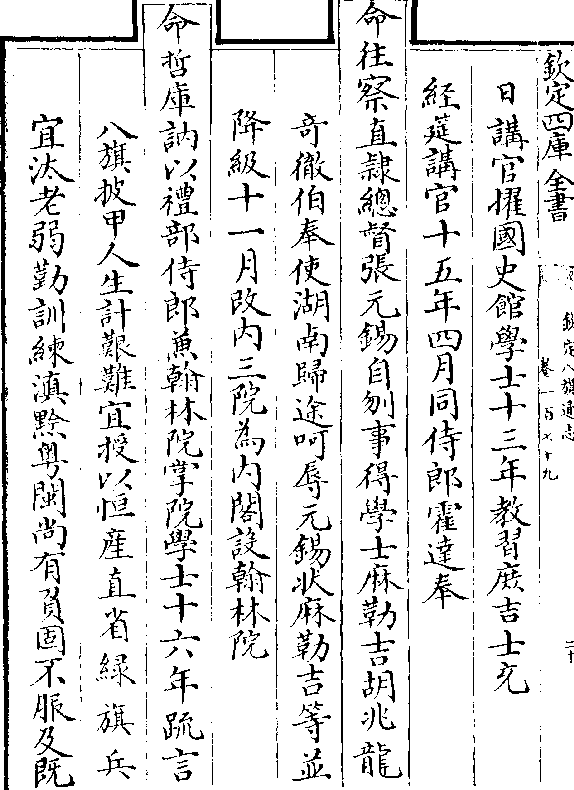 欽定四庫全書
欽定八旗通志
卷一百七十九
二十
日講官擢國史館學士十三年教習庶吉士充
經筵講官十五年四月同侍郎霍達奉
命往察直隸總督張元錫自刎事得學士麻勒吉胡兆龍
奇徹伯奉使湖南歸途呵辱元錫狀麻勒吉等並
降級十一月改內三院為內閣設翰林院
命哲庫訥以禮部侍郎兼翰林院掌院學士十六年疏言
八旗披甲人生計艱難宜授以恒產直省綠旗兵
宜汰老弱勤訓練滇黔粵閩尚有負固不服及既